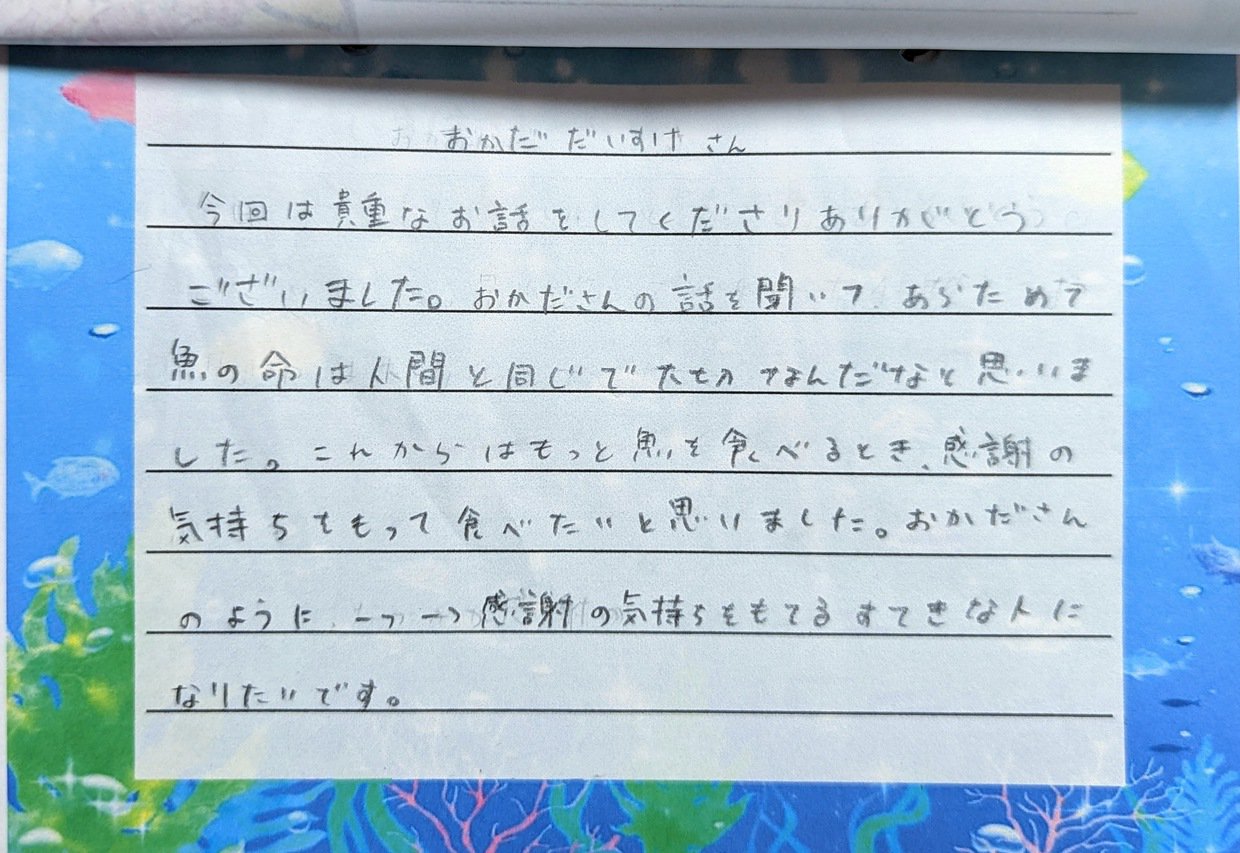 おかだ だいすけ さん
今回は貴重なお話をしてくださりありがとう
ございました。おかださんの話を聞いて、あらためて
魚の命は人間と同じで大切なんだなと思いま
した。これからはもっと魚を食べるとき、感謝の
気持ちをもって食べたいと思いました。おかださん
のように、一つ一つ感謝の気持ちをもてるすてきな人に
なりたいです。